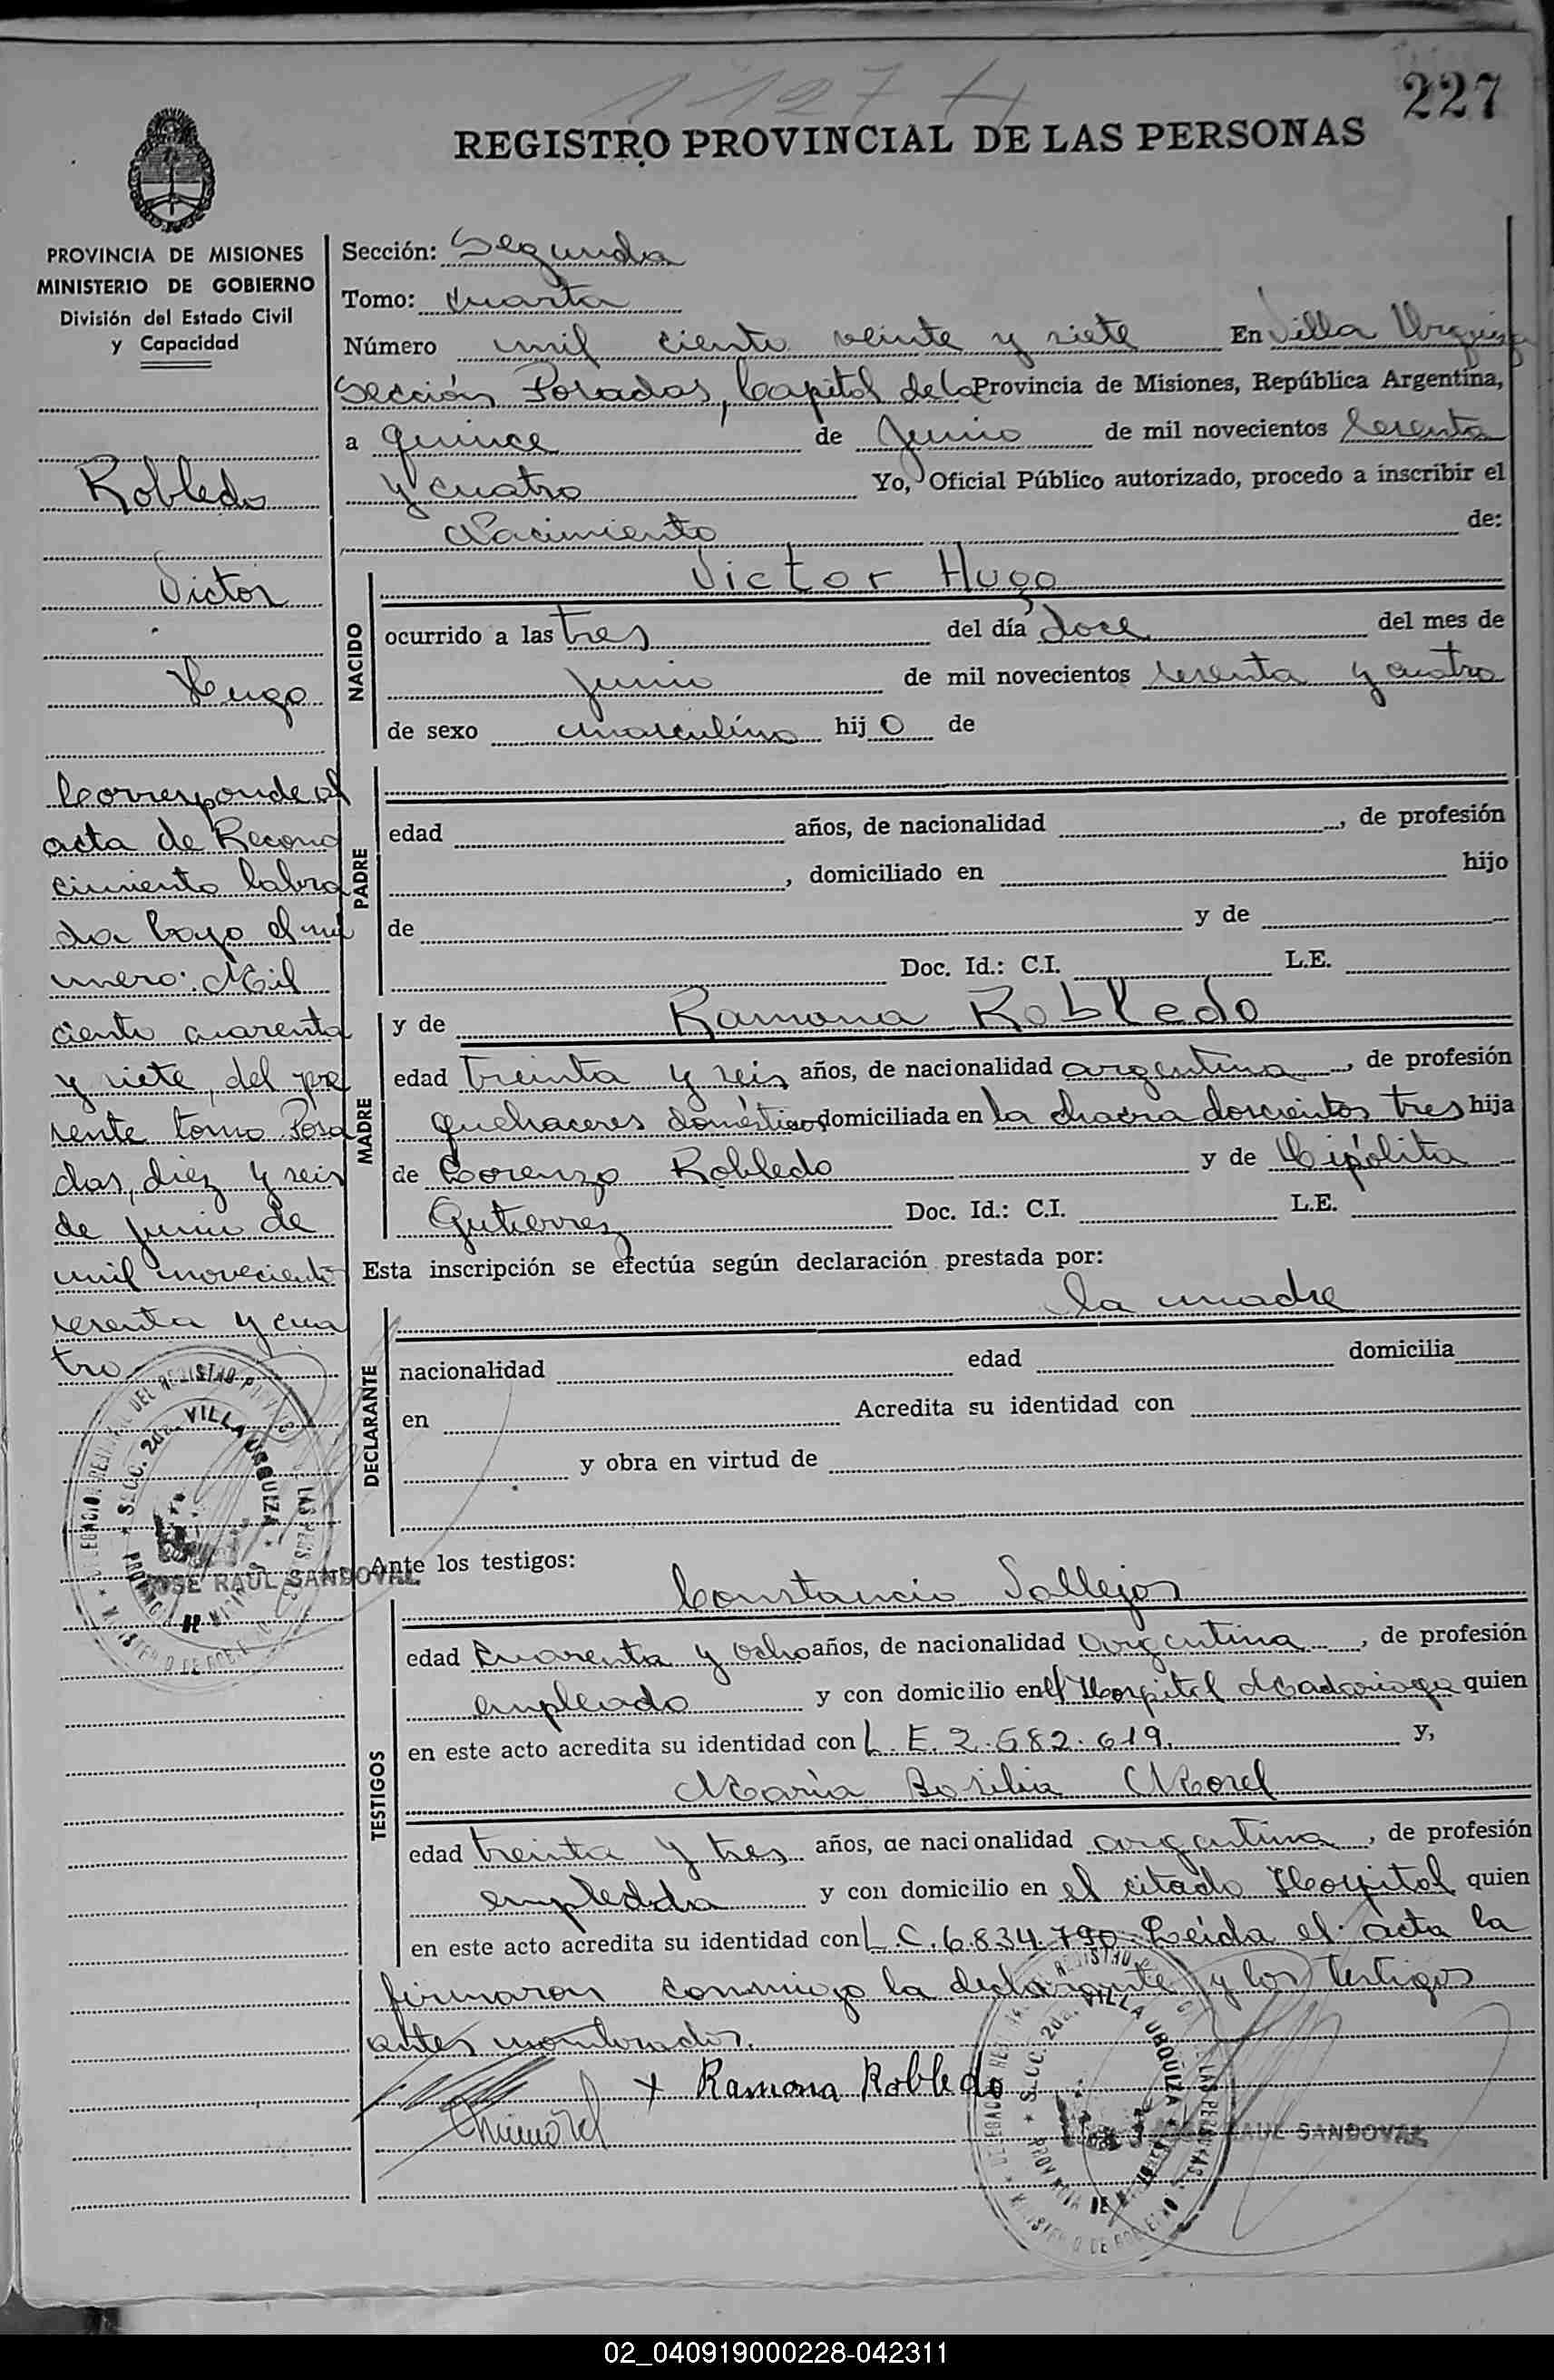 1127
227
REGISTRO PROVINCIAL DE LAS PERSONAS
PROVINCIA DE MISIONES
MINISTERIO DE GOBIERNO
División del Estado Civil
y Capacidad
Robledo
Victor
Hugo
Corresponde al
acta de Recono
cimiento labra
da bajo el nú
mero: Mil
ciento cuarenta
y siete, del pre
sente tomo Posa
das, diez y seis
de junio de
mil novecientos
sesenta y cua
tro
JOSE RAUL SANDOVAL
Sección: Segunda
Tomo: Cuarta
Número mil ciento veinte y siete En Villa Urquiza
Sección Posadas, Capital de la Provincia de Misiones, República Argentina,
a quince de Junio de mil novecientos sesenta
y cuatro Yo, Oficial Público autorizado, procedo a inscribir el
Nacimiento de:
NACIDO
Victor Hugo
ocurrido a las tres del día doce del mes de
junio de mil novecientos sesenta y cuatro
de sexo masculino hijo de
PADRE
edad años, de nacionalidad , de profesión
, domiciliado en hijo
de y de
Doc. Id.: C.I. L.E.
MADRE
y de Ramona Robledo
edad treinta y seis años, de nacionalidad argentina, de profesión
quehaceres domésticos domiciliada en la chacra doscientos tres hija
de Lorenzo Robledo y de Hipólita
Gutierrez Doc. Id.: C.I. L.E.
Esta inscripción se efectúa según declaración prestada por:
DECLARANTE
la madre
nacionalidad edad domicilia
en Acredita su identidad con
y obra en virtud de
Ante los testigos:
TESTIGOS
Constancio Vallejos
edad Cuarenta y ocho años, de nacionalidad argentina, de profesión
empleado y con domicilio en el Hospital Madariaga quien
en este acto acredita su identidad con L.E. 2.582.619. y,
María Basilia Morel
edad treinta y tres años, de nacionalidad argentina, de profesión
empleada y con domicilio en el citado Hospital quien
en este acto acredita su identidad con L.C. 6.834.790. Leída el acta la
firmaron conmigo la declarante y los testigos
antes nombrados.
x Ramona Robledo
RAUL SANDOVAL
02_040919000228-042311